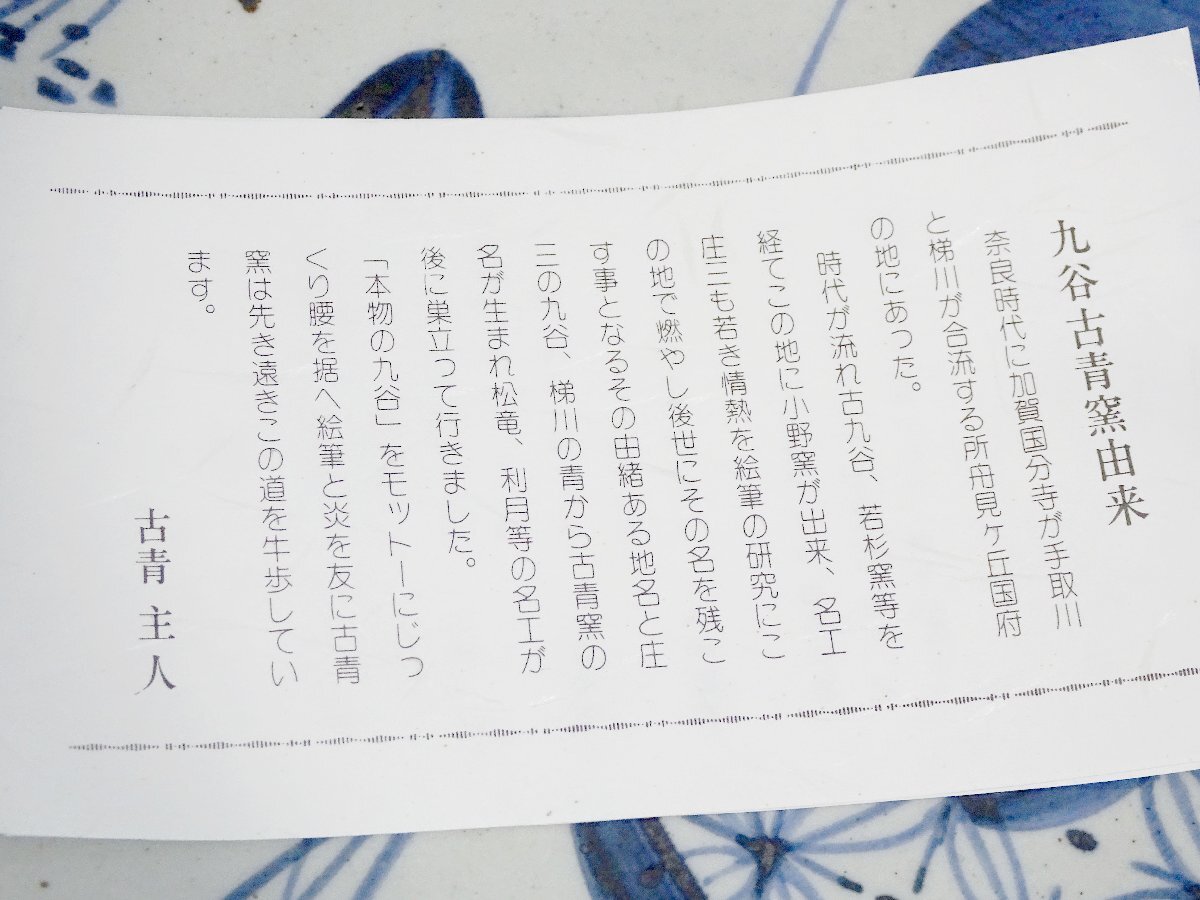 九谷古青窯由来
奈良時代に加賀国分寺が手取川
と梯川が合流する所舟見ヶ丘国府
の地にあった。
時代が流れ古九谷、若杉窯等を
経てこの地に小野窯が出来、名工
庄三も若き情熱を絵筆の研究にこ
の地で燃やし後世にその名を残こ
す事となるその由緒ある地名と庄
三の九谷、梯川の青から古青窯の
名が生まれ松竜、利月等の名工が
後に巣立つて行きました。
「本物の九谷」をモットーにじっ
くり腰を据へ絵筆と炎を友に古青
窯は先き遠きこの道を牛歩してい
ます。
古青主人